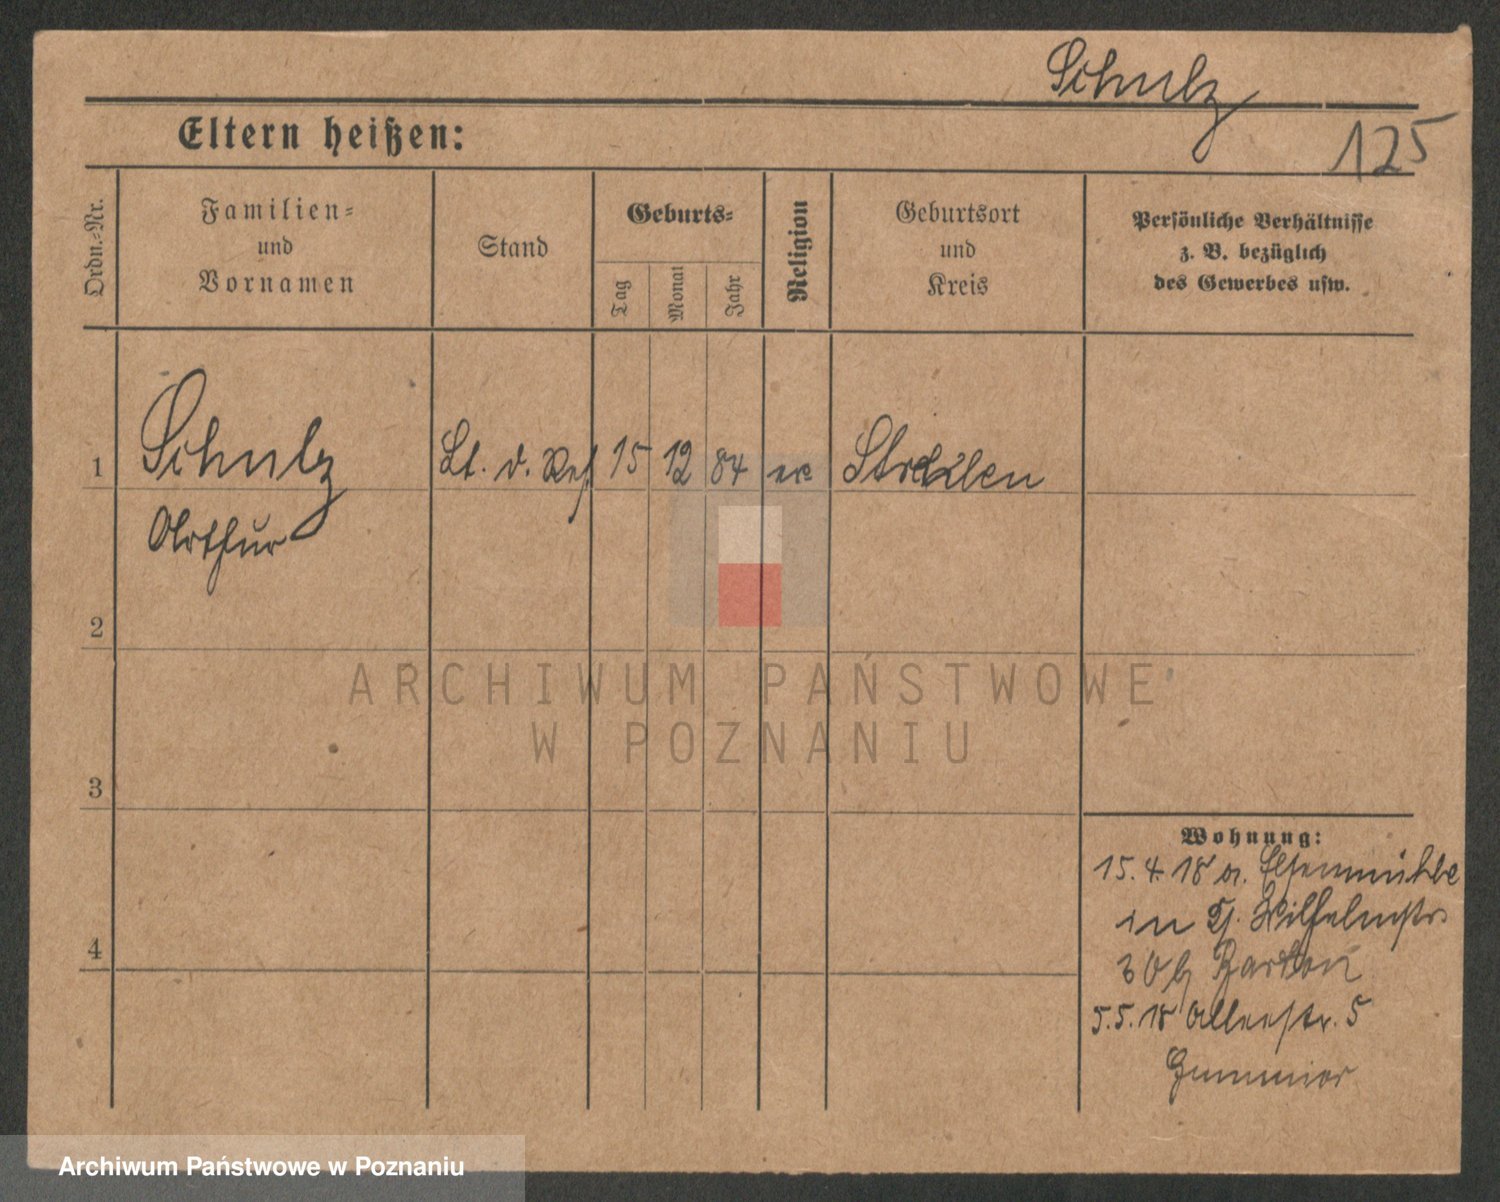 Schulz
125
Eltern heißen:
Ordn.-Nr.
Familien-
und
Vornamen
Stand
Geburts-
Tag
Monat
Jahr
Religion
Geburtsort
und
Kreis
Persönliche Verhältnisse
z. B. bezüglich
des Gewerbes usw.
1 Schulz Lt. d. Res. 15 12 84
Arthur
2
3
4
ARCHIWUM PAŃSTWOWE
W POZNANIU
Wohnung:
15. 4. 18 a.
in Wilhelmstr.
5. 5. 18 Alleestr. 5
Archiwum Państwowe w Poznaniu